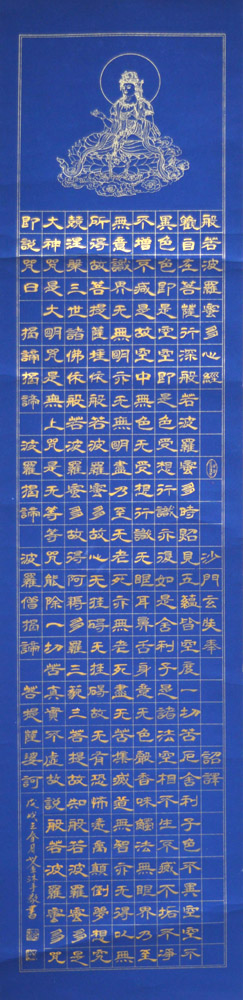 般若波羅蜜多心經 沙門玄奘奉 詔譯
觀自在菩薩行深般若波羅蜜多時照見五蘊皆空度一切苦厄舍利子色不異空空不
異色色即是空空即是色受想行識亦復如是舍利子是諸法空相不生不滅不垢不淨
不增不減是故空中無色无受想行識无眼耳鼻舌身意无色聲香味觸法無眼界乃至
無意識界无無明亦无無明盡乃至无老死亦無老死盡无苦集滅道無智亦无得以无
所得故菩提薩埵依般若波羅蜜多故心无罣礙无罣礙故无有恐怖遠離顛倒夢想究
竟涅槃三世諸佛依般若波羅蜜多故得阿耨多羅三藐三菩提故知般若波羅蜜多是
大神咒是大明咒是無上咒是无等等咒能除一切苦真實不虛故說般若波羅蜜多咒
即說咒曰 揭諦揭諦 波羅揭諦 波羅僧揭諦 菩提薩婆訶 戊戌